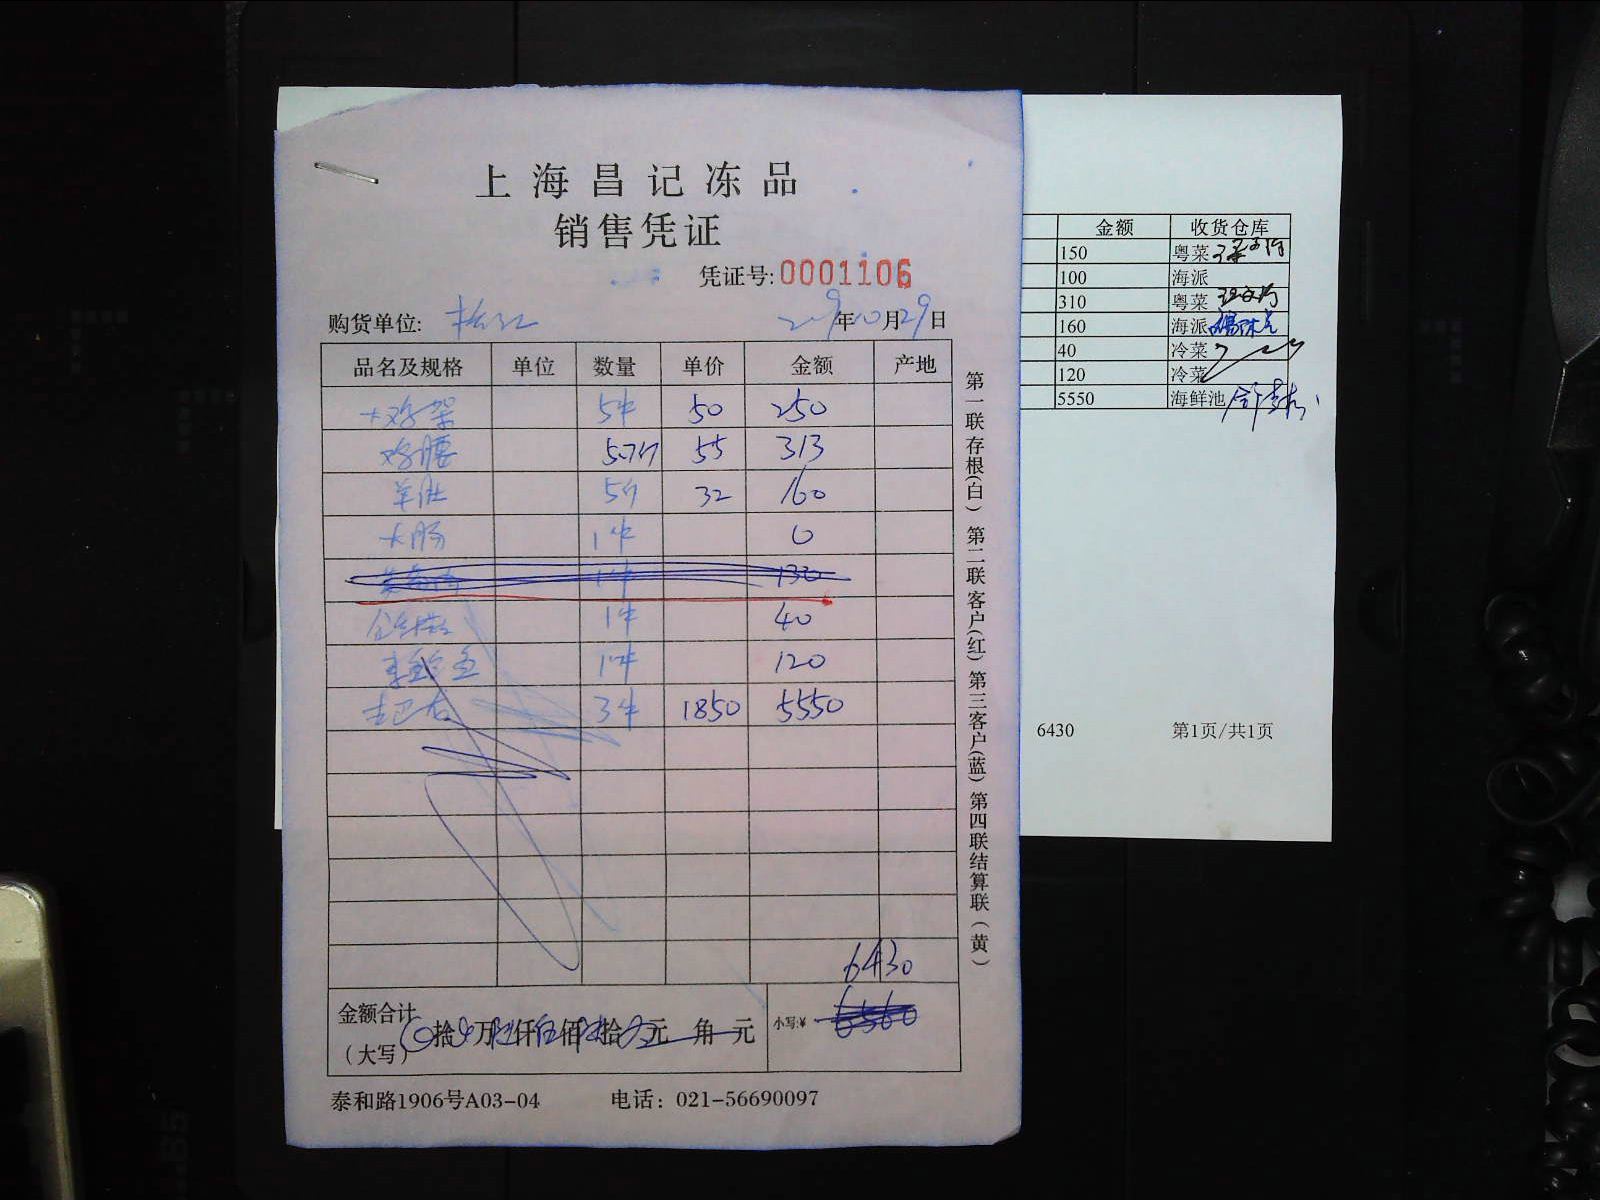 上海昌记冻品
销售凭证
凭证号:0001106
购货单位: 年10月29日
品名及规格 单位 数量 单价 金额 产地
大鸡架 5件 50 250
鸡腰 5.7斤 55 313
羊肚 5斤 32 160
大肠 1件 0
1件 130
1件 40
1件 120
3件 1850 5550
6430
金额合计
(大写) 拾 万 仟 佰 拾 元 角 元 小写:¥ 6560
泰和路1906号A03-04 电话: 021-56690097
第一联存根(白) 第二联客户(红) 第三客户(蓝) 第四联结算联(黄)
金额 收货仓库
150 粤菜
100 海派
310 粤菜
160 海派
40 冷菜
120 冷菜
5550 海鲜池
6430 第1页/共1页